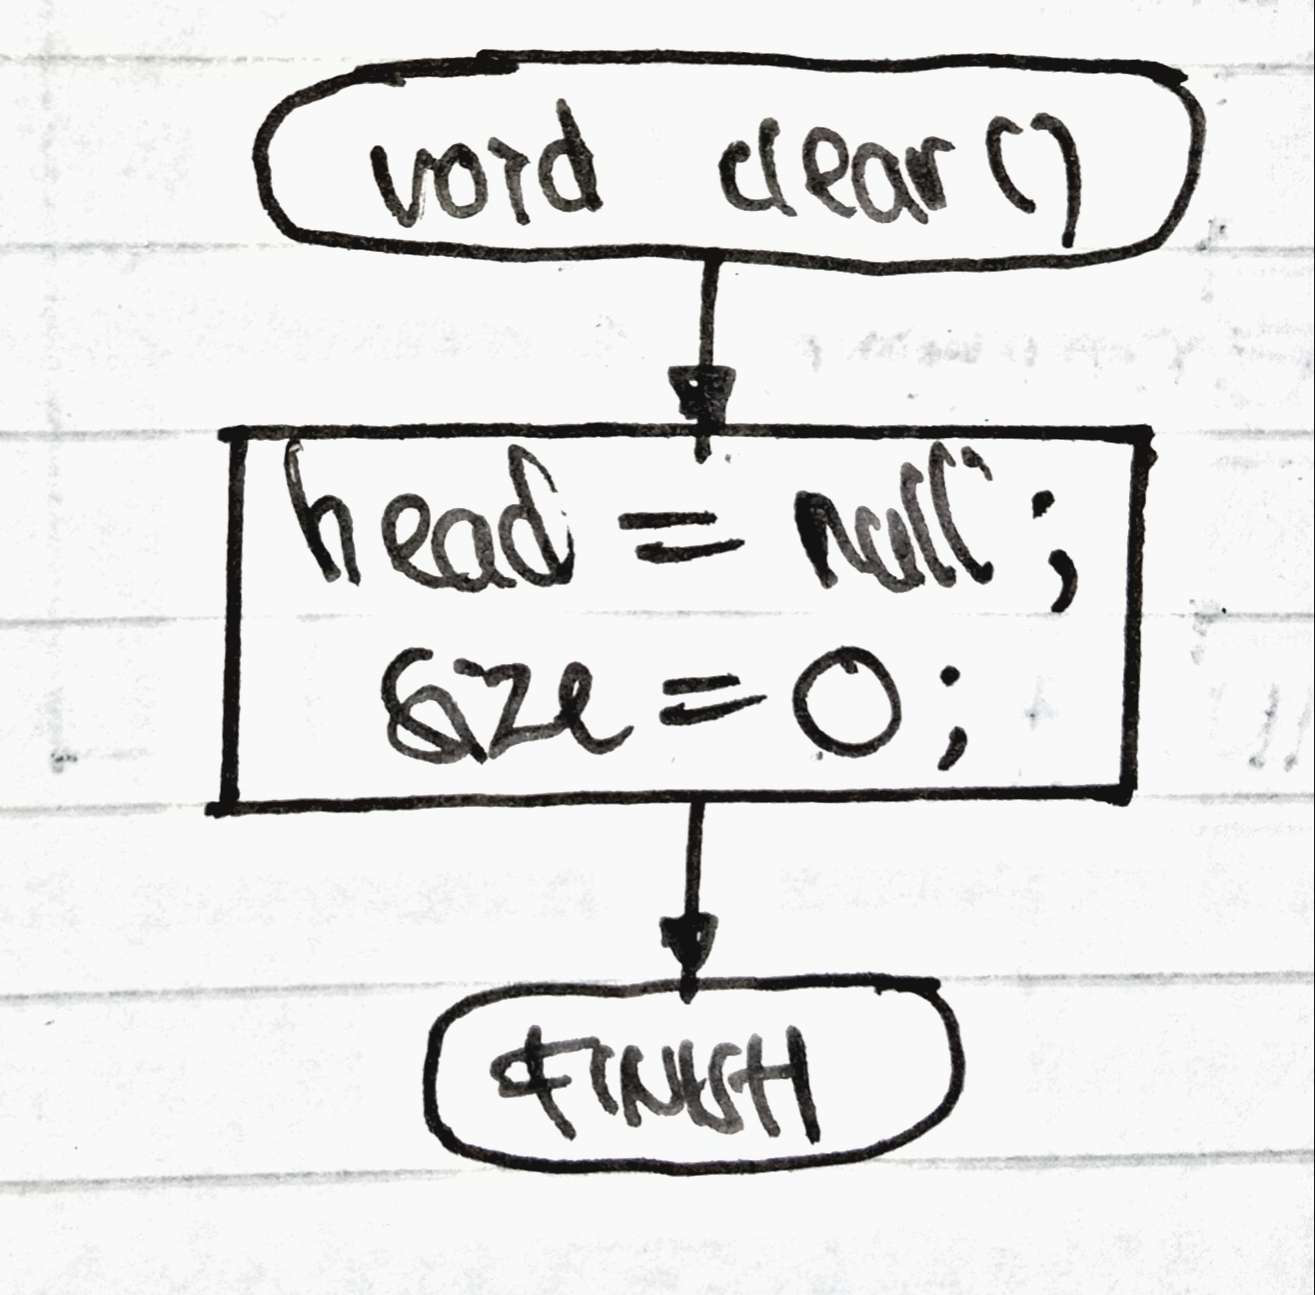 void clear()
head = null;
size = 0;
FINISH